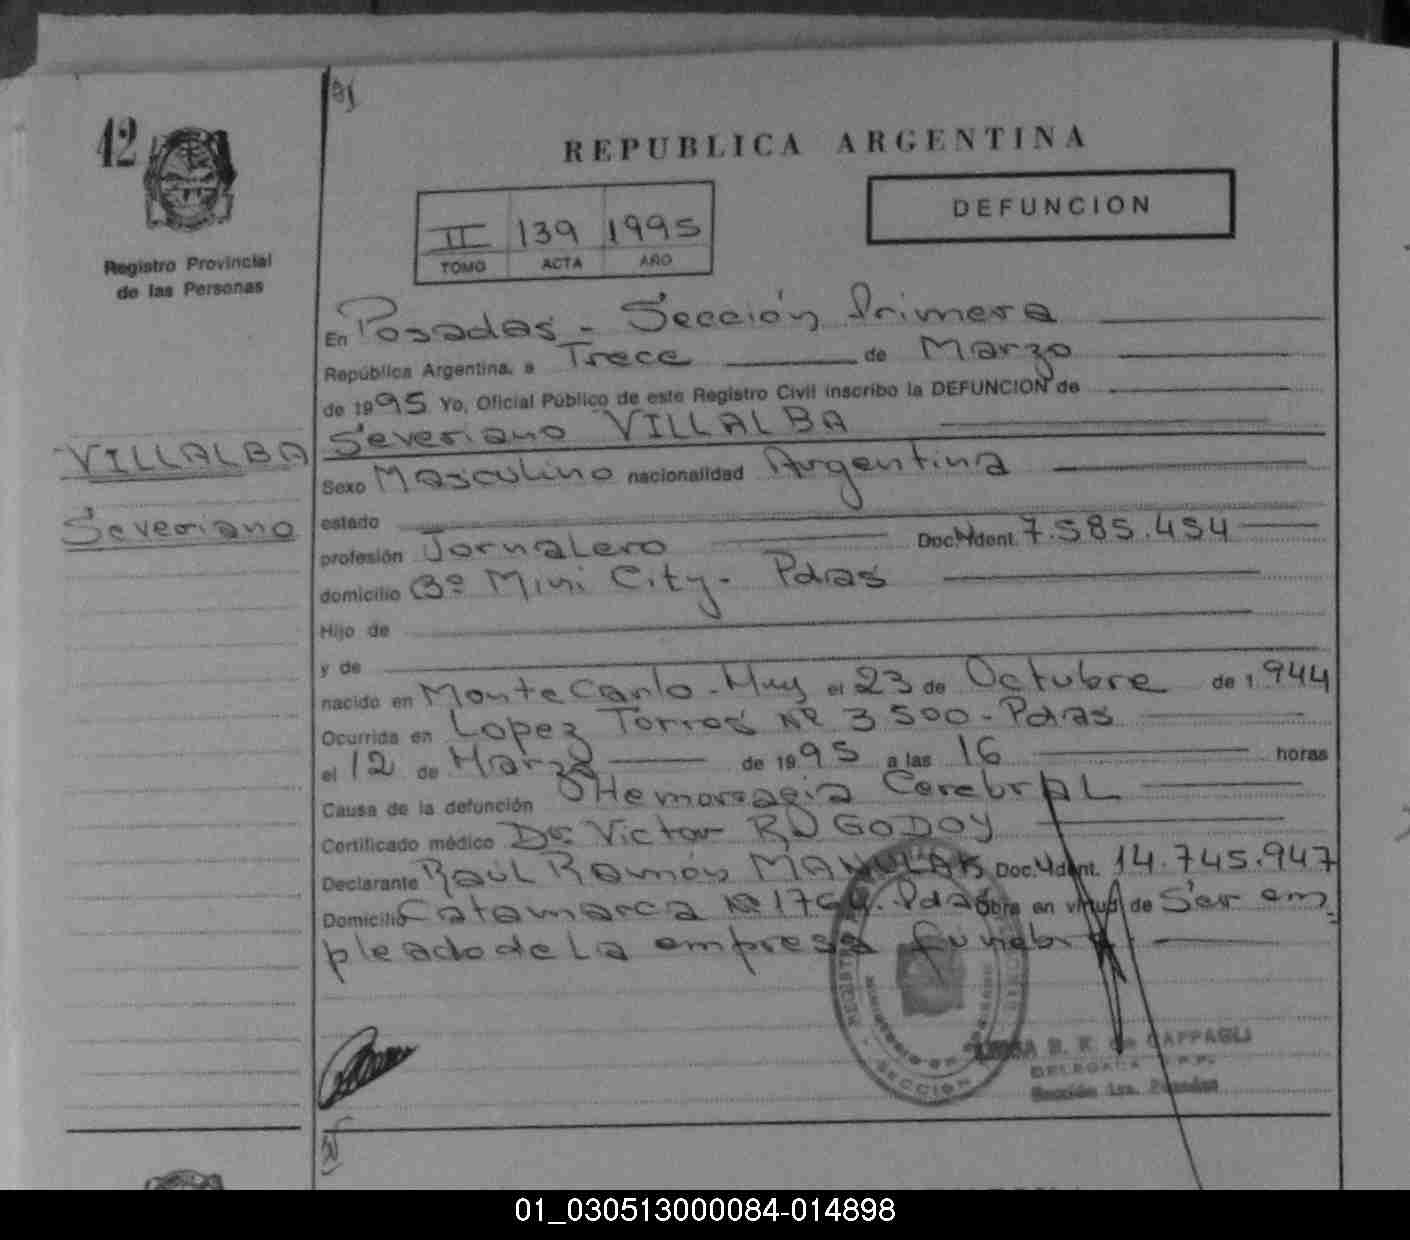 42
Registro Provincial
de las Personas
REPUBLICA ARGENTINA
DEFUNCION
II 139 1995
TOMO ACTA AÑO
En Posadas - Sección Primera
República Argentina, a Trece de Marzo
de 1995 Yo, Oficial Público de este Registro Civil inscribo la DEFUNCION de
VILLALBA
Severiano VILLALBA
Sexo Masculino nacionalidad Argentina
Severiano
estado
profesión Jornalero Doc. Ident. 7.585.454
domicilio Bº Mini City - Pdas
Hijo de
y de
nacido en Monte Carlo - Mnes el 23 de Octubre de 1.944
Ocurrida en Lopez Torres Nº 3500 - Pdas
el 12 de Marzo de 1995 a las 16 horas
Causa de la defunción Hemorragia CerebrAL
Certificado médico Dr. Victor R. GODOY
Declarante Raúl Ramón Doc. Ident. 14.745.947
Domicilio Catamarca Nº Pdas Obra en virtud de Ser em
pleado de La empresa funebre
SECCION
de CAPPAGLI
DELEGADA
Sección 1ra. Posadas
01_030513000084-014898